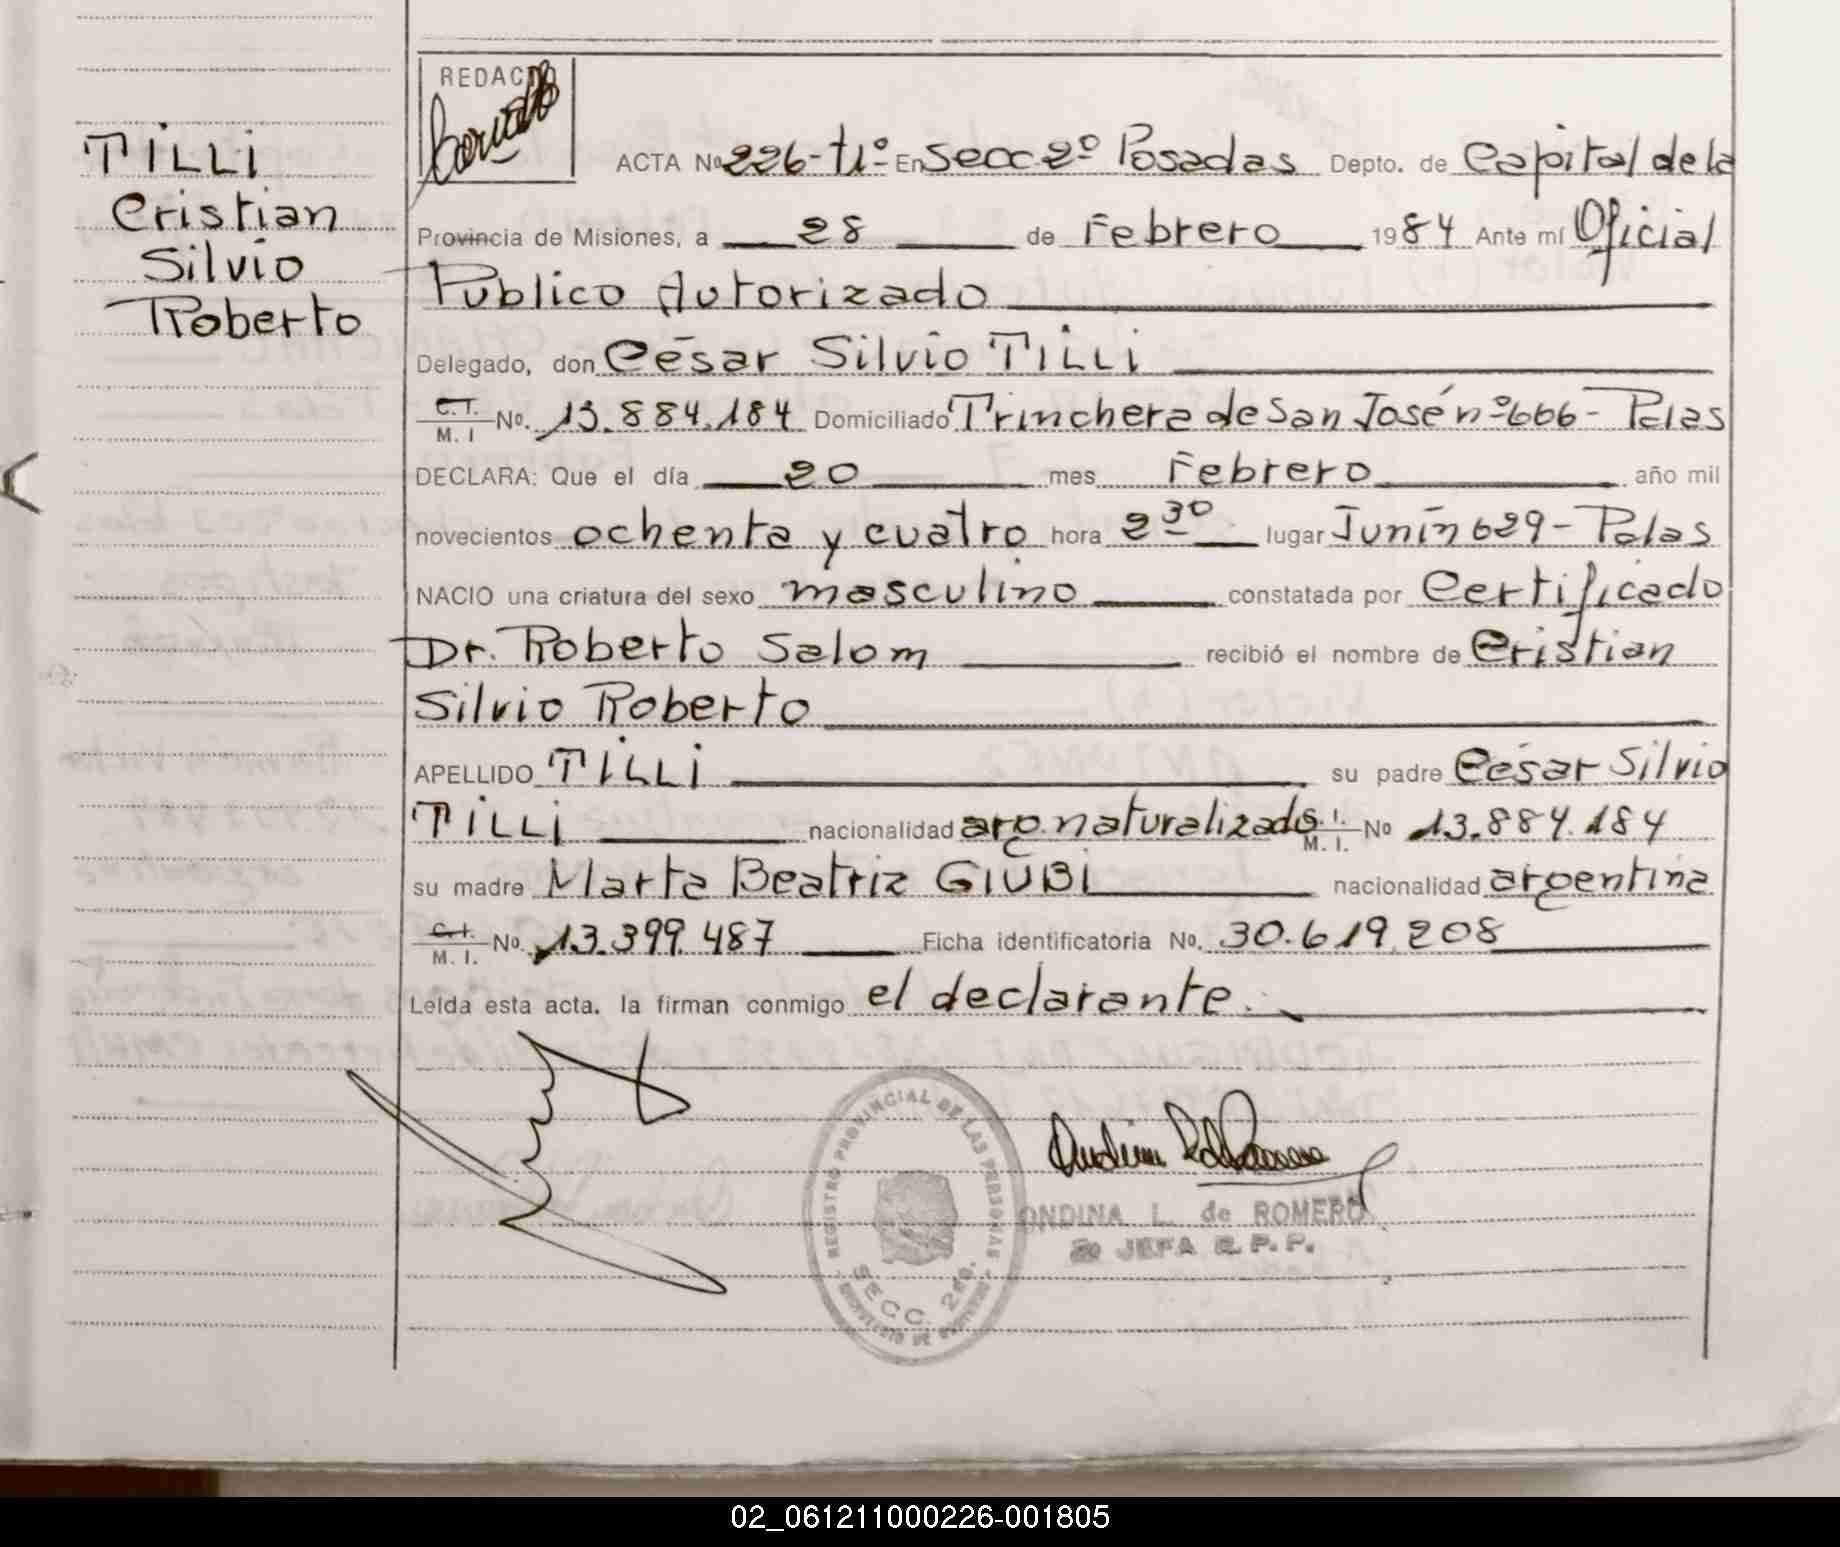 TILLI
Cristian
Silvio
Roberto
REDAC
ACTA Nº 226-tiº En Secc 2º Posadas Depto. de Capital de la
Provincia de Misiones, a 28 de Febrero 1984 Ante mí Oficial
Público Autorizado
Delegado, don César Silvio TILLI
C.I. M.I No. 13.884.184 Domiciliado Trinchera de San José nº 666 - Pdas
DECLARA: Que el día 20 mes Febrero año mil
novecientos ochenta y cuatro hora 2 30 lugar Junín 629 - Pdas
NACIO una criatura del sexo masculino constatada por Certificado
Dr. Roberto Salom recibió el nombre de Cristian
Silvio Roberto
APELLIDO TILLI su padre César Silvio
TILLI nacionalidad arg. naturalizado C.I. M.I. No 13.884.184
su madre Marta Beatriz GIUBI nacionalidad argentina
C.I. M.I. No. 13.399.487 Ficha identificatoria No. 30.619.208
Leída esta acta. la firman conmigo el declarante.
REGISTRO PROVINCIAL DE LAS PERSONAS
SECC. 2da.
ONDINA L. de ROMERO
JEFA R.P.P.
02_061211000226-001805